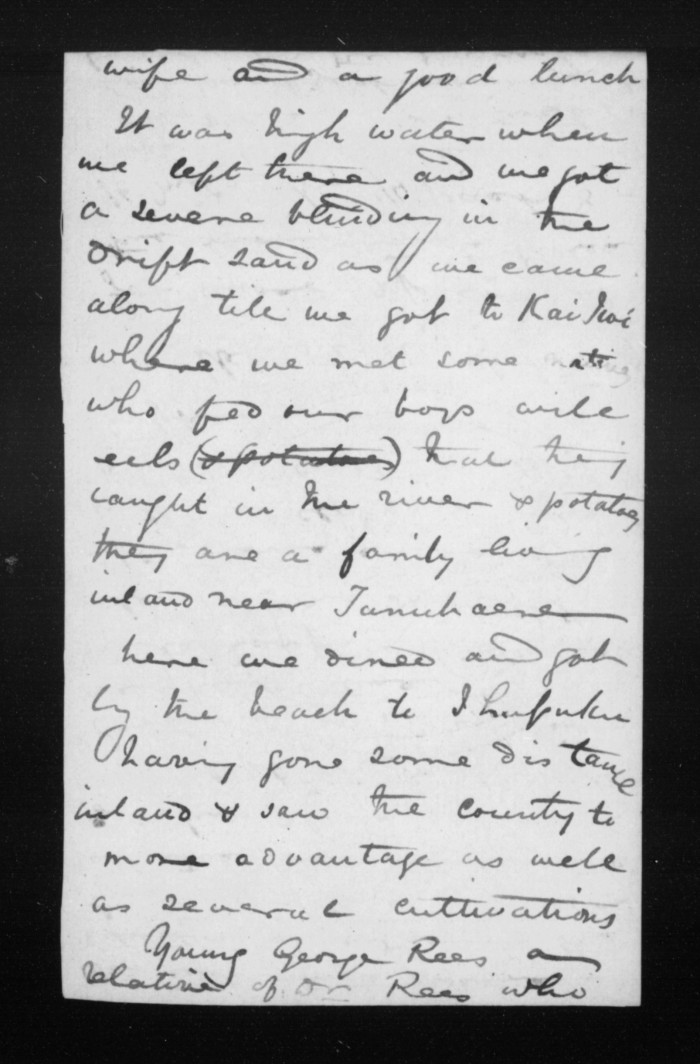 wife and a good lunch
It was high water when
we left there and we got
a severe blinding in the
Drift sand as we came
along till we got to Kai Iwi
where we met some natives
who fed our boys with
eels (& potatoes) that they
caught in the river & potatoes
they are a family living
inland near
here we dined and got
by the beach to
having gone some distance
inland & saw the country to
more advantage as well
as several cultivations
Young George Rees a
relative of Dr Rees who